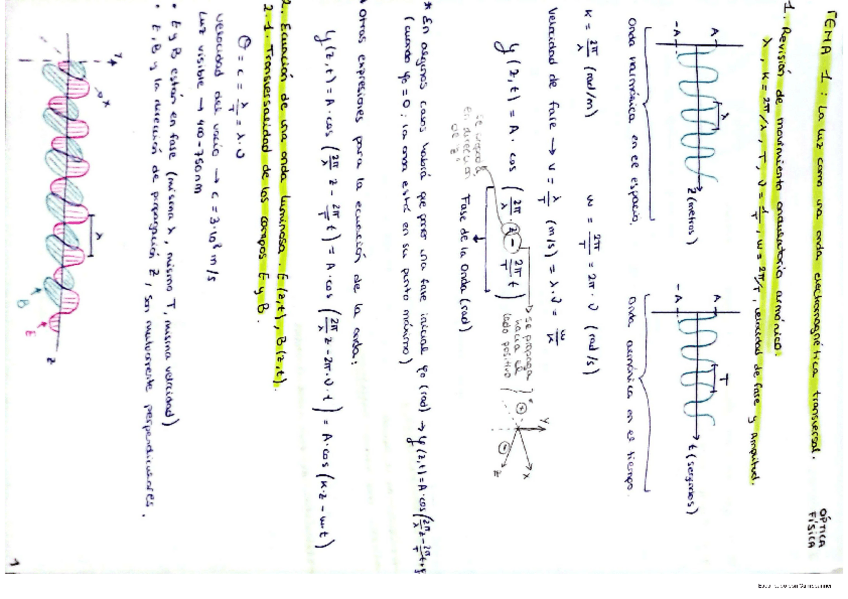 ÓPTICA
FÍSICA
TEMA 1: La luz como una onda electromagnética transversal.
1. Revisión de movimiento ondulatorio armónico:
λ, K = 2π/λ, T, ν = 1/T, ω = 2π/T, velocidad de fase y amplitud.
A
-A
λ
z (metros)
A
-A
T
t (segundos)
Onda harmónica en el espacio.
Onda armónica en el tiempo.
K = 2π/λ (rad/m)
ω = 2π/T = 2π·ν (rad/s)
Velocidad de fase → v = λ/T (m/s) = λ·ν = ω/K
y(z,t) = A · cos (2π/λ z - 2π/T t)
se propaga en dirección de z
Fase de la onda (rad)
se propaga hacia el lado positivo
Y
X
Z
* En algunos casos habrá que poner una fase inicial φ₀ (rad) → y(z,t) = A·cos(2π/λ z - 2π/T t + φ
(cuando φ₀ = 0: la onda está en su punto máximo)
Otras expresiones para la ecuación de la onda:
y(z,t) = A·cos (2π/λ z - 2π/T t) = A·cos (2π/λ z - 2π·ν·t) = A·cos (K·z - ωt)
2. Ecuación de una onda luminosa. E(z,t), B(z,t).
2.1. Transversalidad de los campos E y B.
v = c = λ/T = λ·ν
velocidad del vacío → c = 3·10⁸ m/s
Luz visible → 400-750nm
• E y B están en fase (misma λ, mismo T, misma velocidad)
• E, B y la dirección de propagación z, son mutuamente perpendiculares.
Y
X
λ
B
E
Z
1